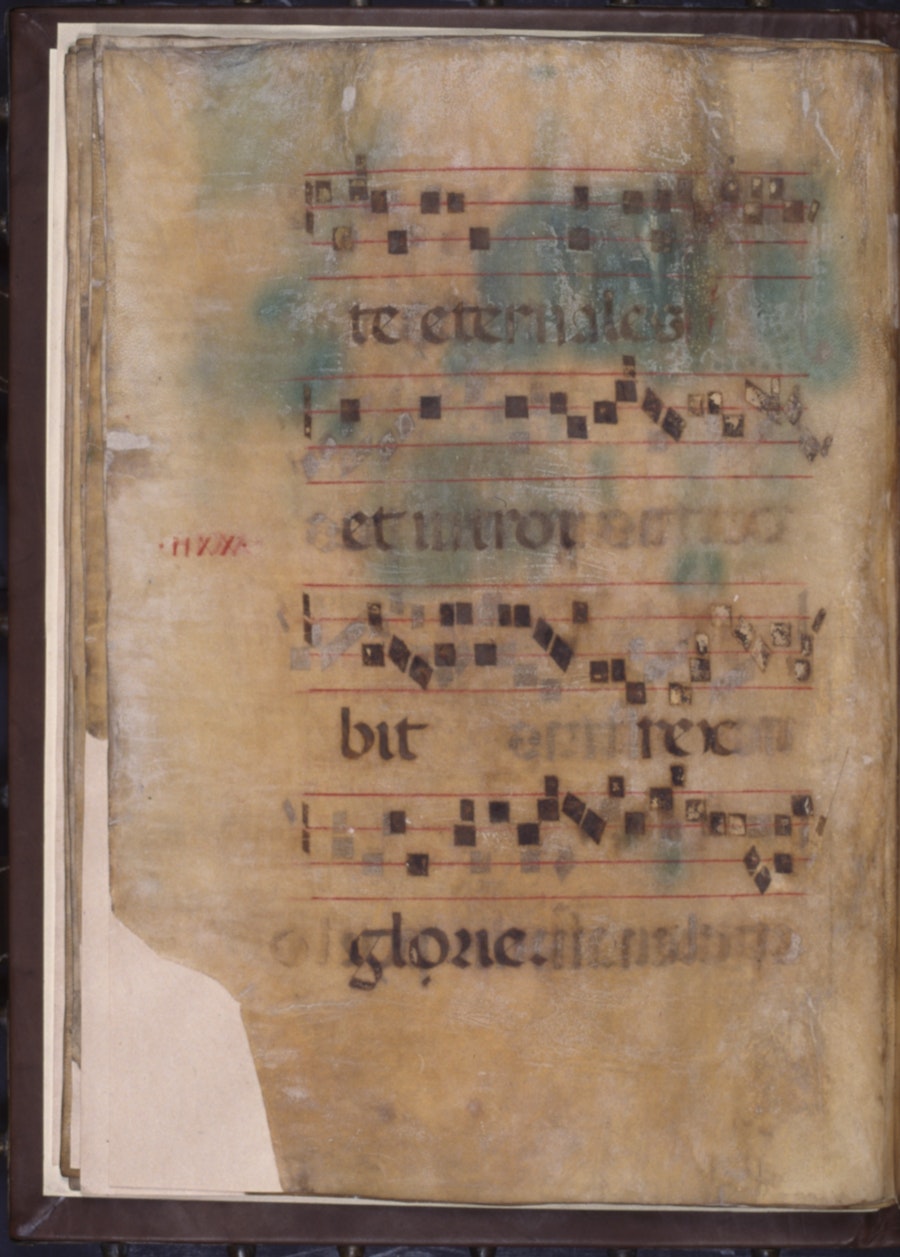 te eternales
et introi
bit rex
glorie.